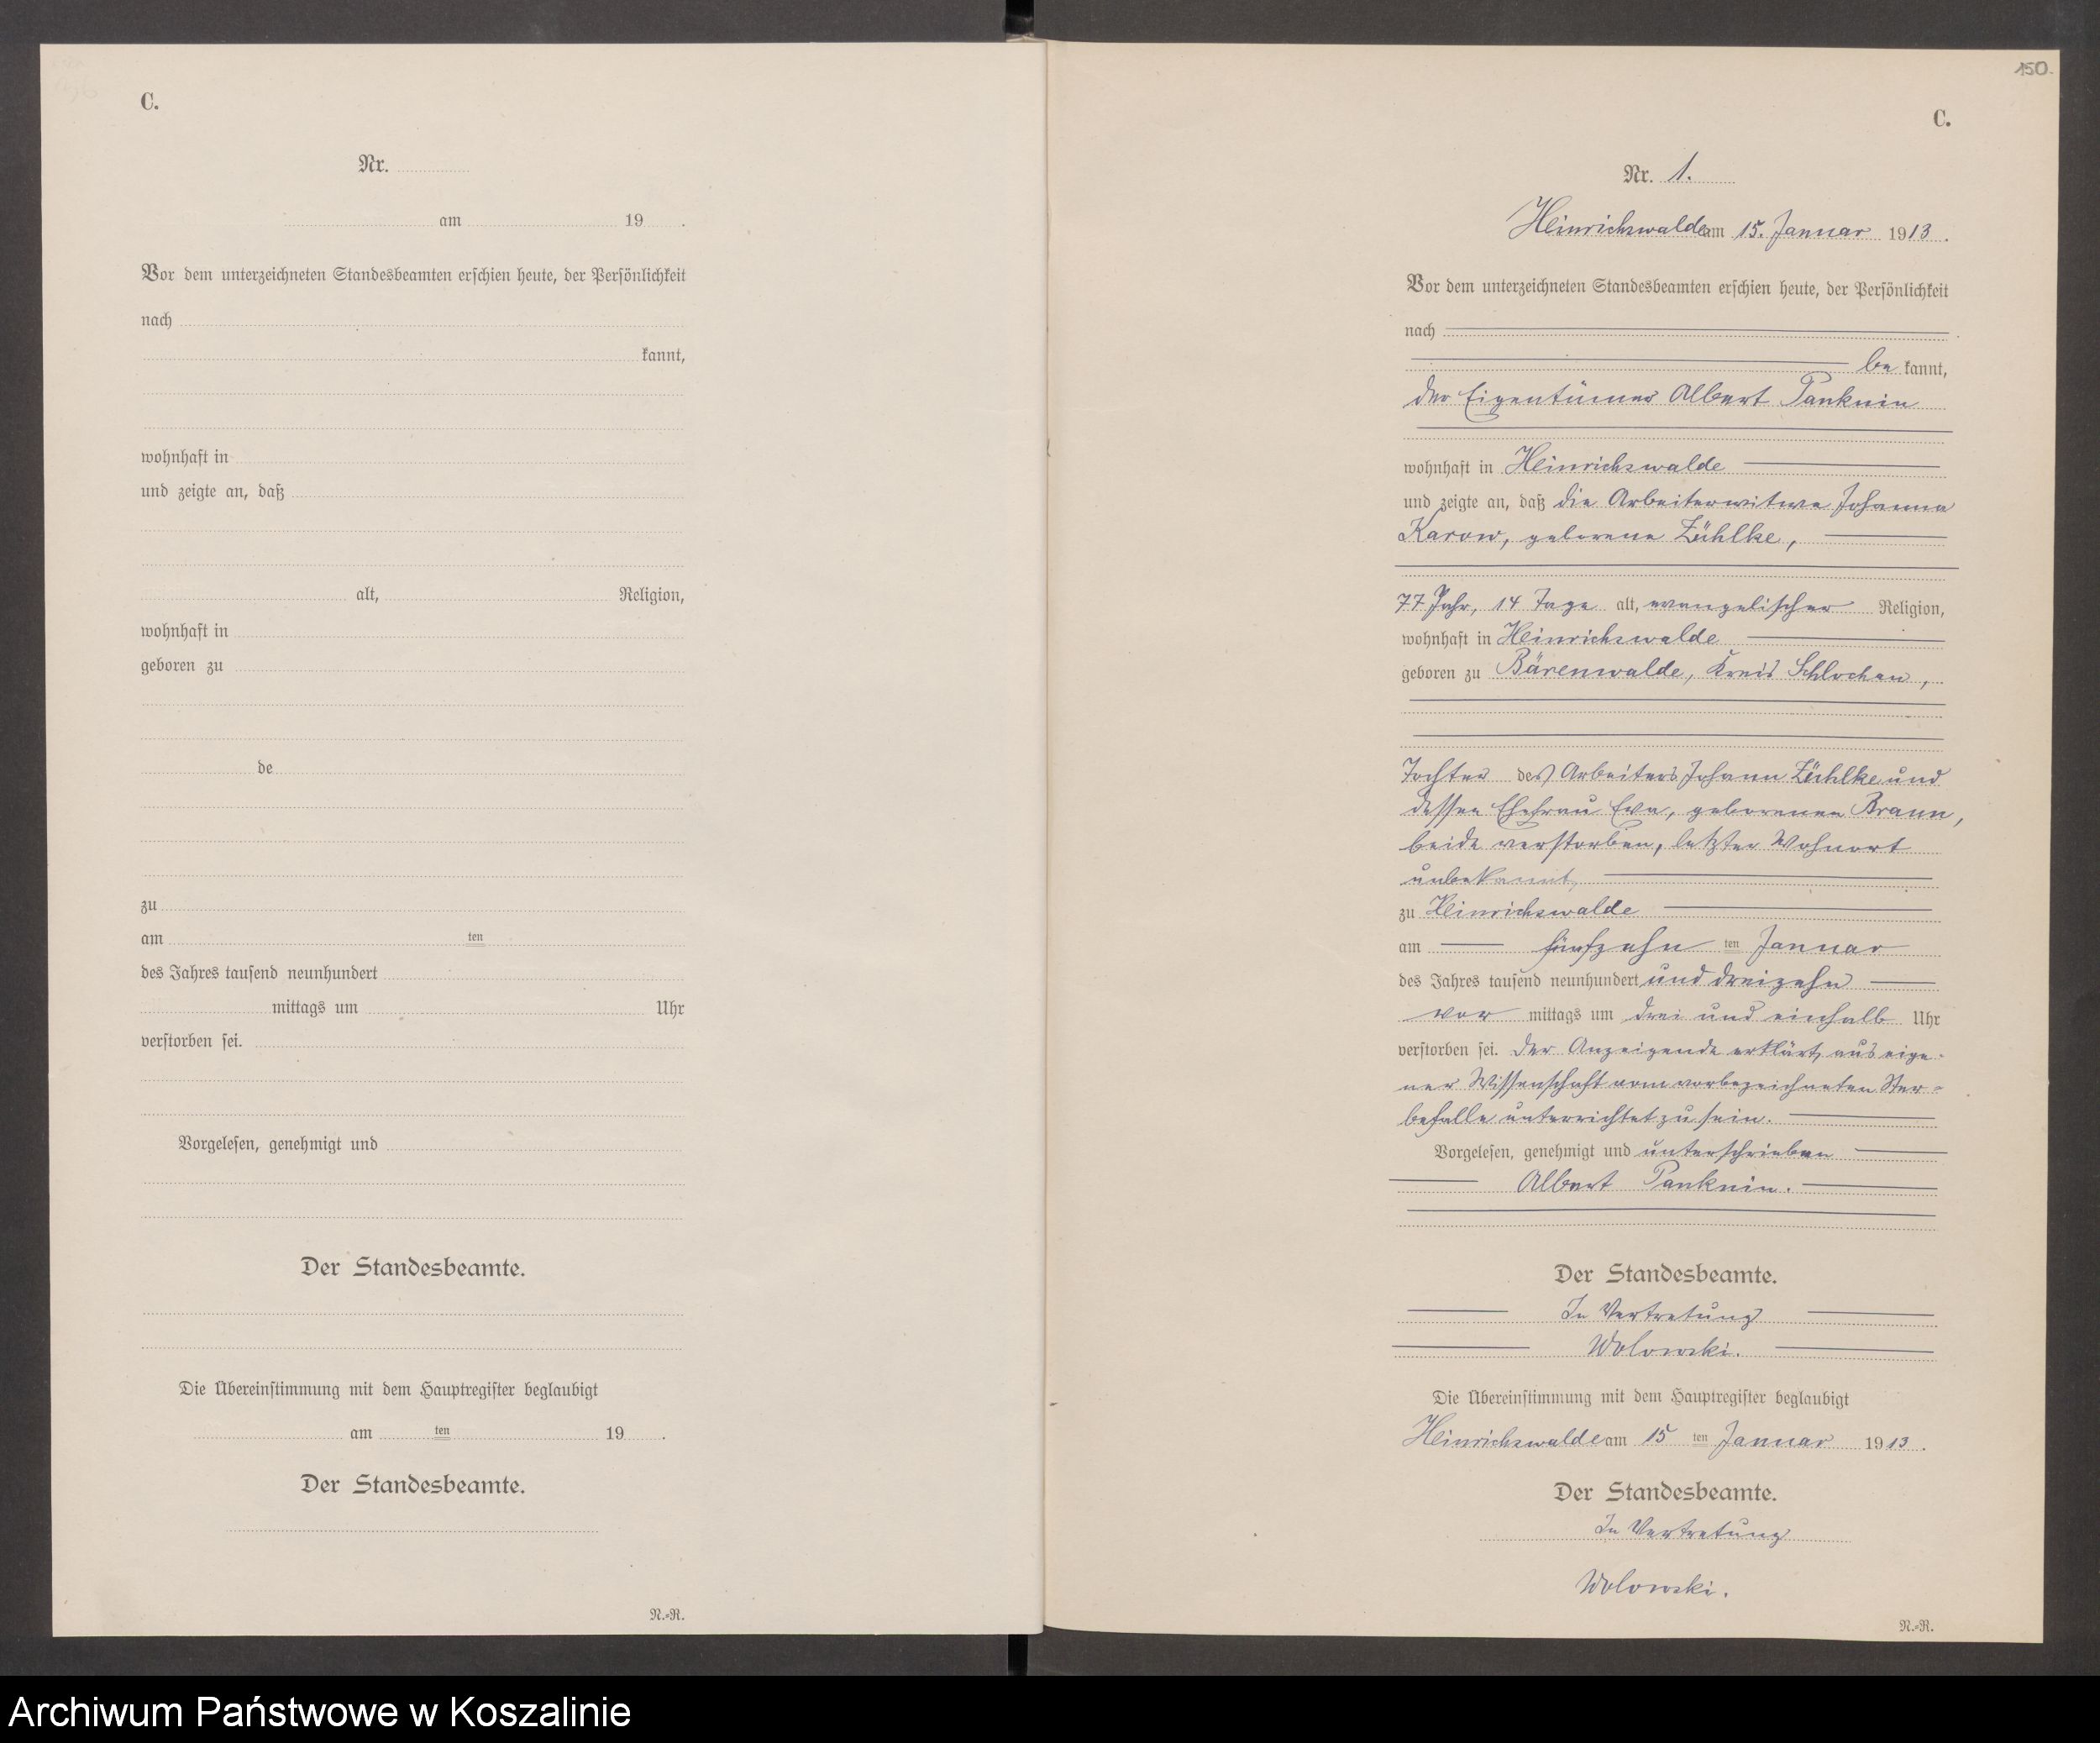 C.
Nr.
am 19 .
Vor dem unterzeichneten Standesbeamten erschien heute, der Persönlichkeit
nach
kannt,
wohnhaft in
und zeigte an, daß
alt, Religion,
wohnhaft in
geboren zu
de
zu
am ten
des Jahres tausend neunhundert
mittags um Uhr
verstorben sei.
Vorgelesen, genehmigt und
Der Standesbeamte.
Die Übereinstimmung mit dem Hauptregister beglaubigt
am ten 19 .
Der Standesbeamte.
N.-R.
150.
C.
Nr. 1.
Heinrichswalde am 15. Januar 1913.
Vor dem unterzeichneten Standesbeamten erschien heute, der Persönlichkeit
nach
be kannt,
der Eigentümer Albert Panknin
wohnhaft in Heinrichswalde
und zeigte an, daß die Arbeiterwitwe Johanna
Karow, geborene Zühlke,
77 Jahr, 14 Tage alt, evangelischer Religion,
wohnhaft in Heinrichswalde
geboren zu Bärenwalde, Kreis Schlochau,
Tochter des Arbeiters Johann Zühlke und
dessen Ehefrau Eva, geborenen Braun,
beide verstorben, letzter Wohnort
unbekannt,
zu Heinrichswalde
am fünfzehn ten Januar
des Jahres tausend neunhundert und dreizehn
vor mittags um drei und einhalb Uhr
verstorben sei. Der Anzeigende erklärt, aus eige-
ner Wissenschaft vom vorbezeichneten Ster-
befalle unterrichtet zu sein.
Vorgelesen, genehmigt und unterschrieben
Albert Panknin.
Der Standesbeamte.
In Vertretung
Wolowski.
Die Übereinstimmung mit dem Hauptregister beglaubigt
Heinrichswalde am 15 ten Januar 1913.
Der Standesbeamte.
In Vertretung
Wolowski.
N.-R.
Archiwum Państwowe w Koszalinie